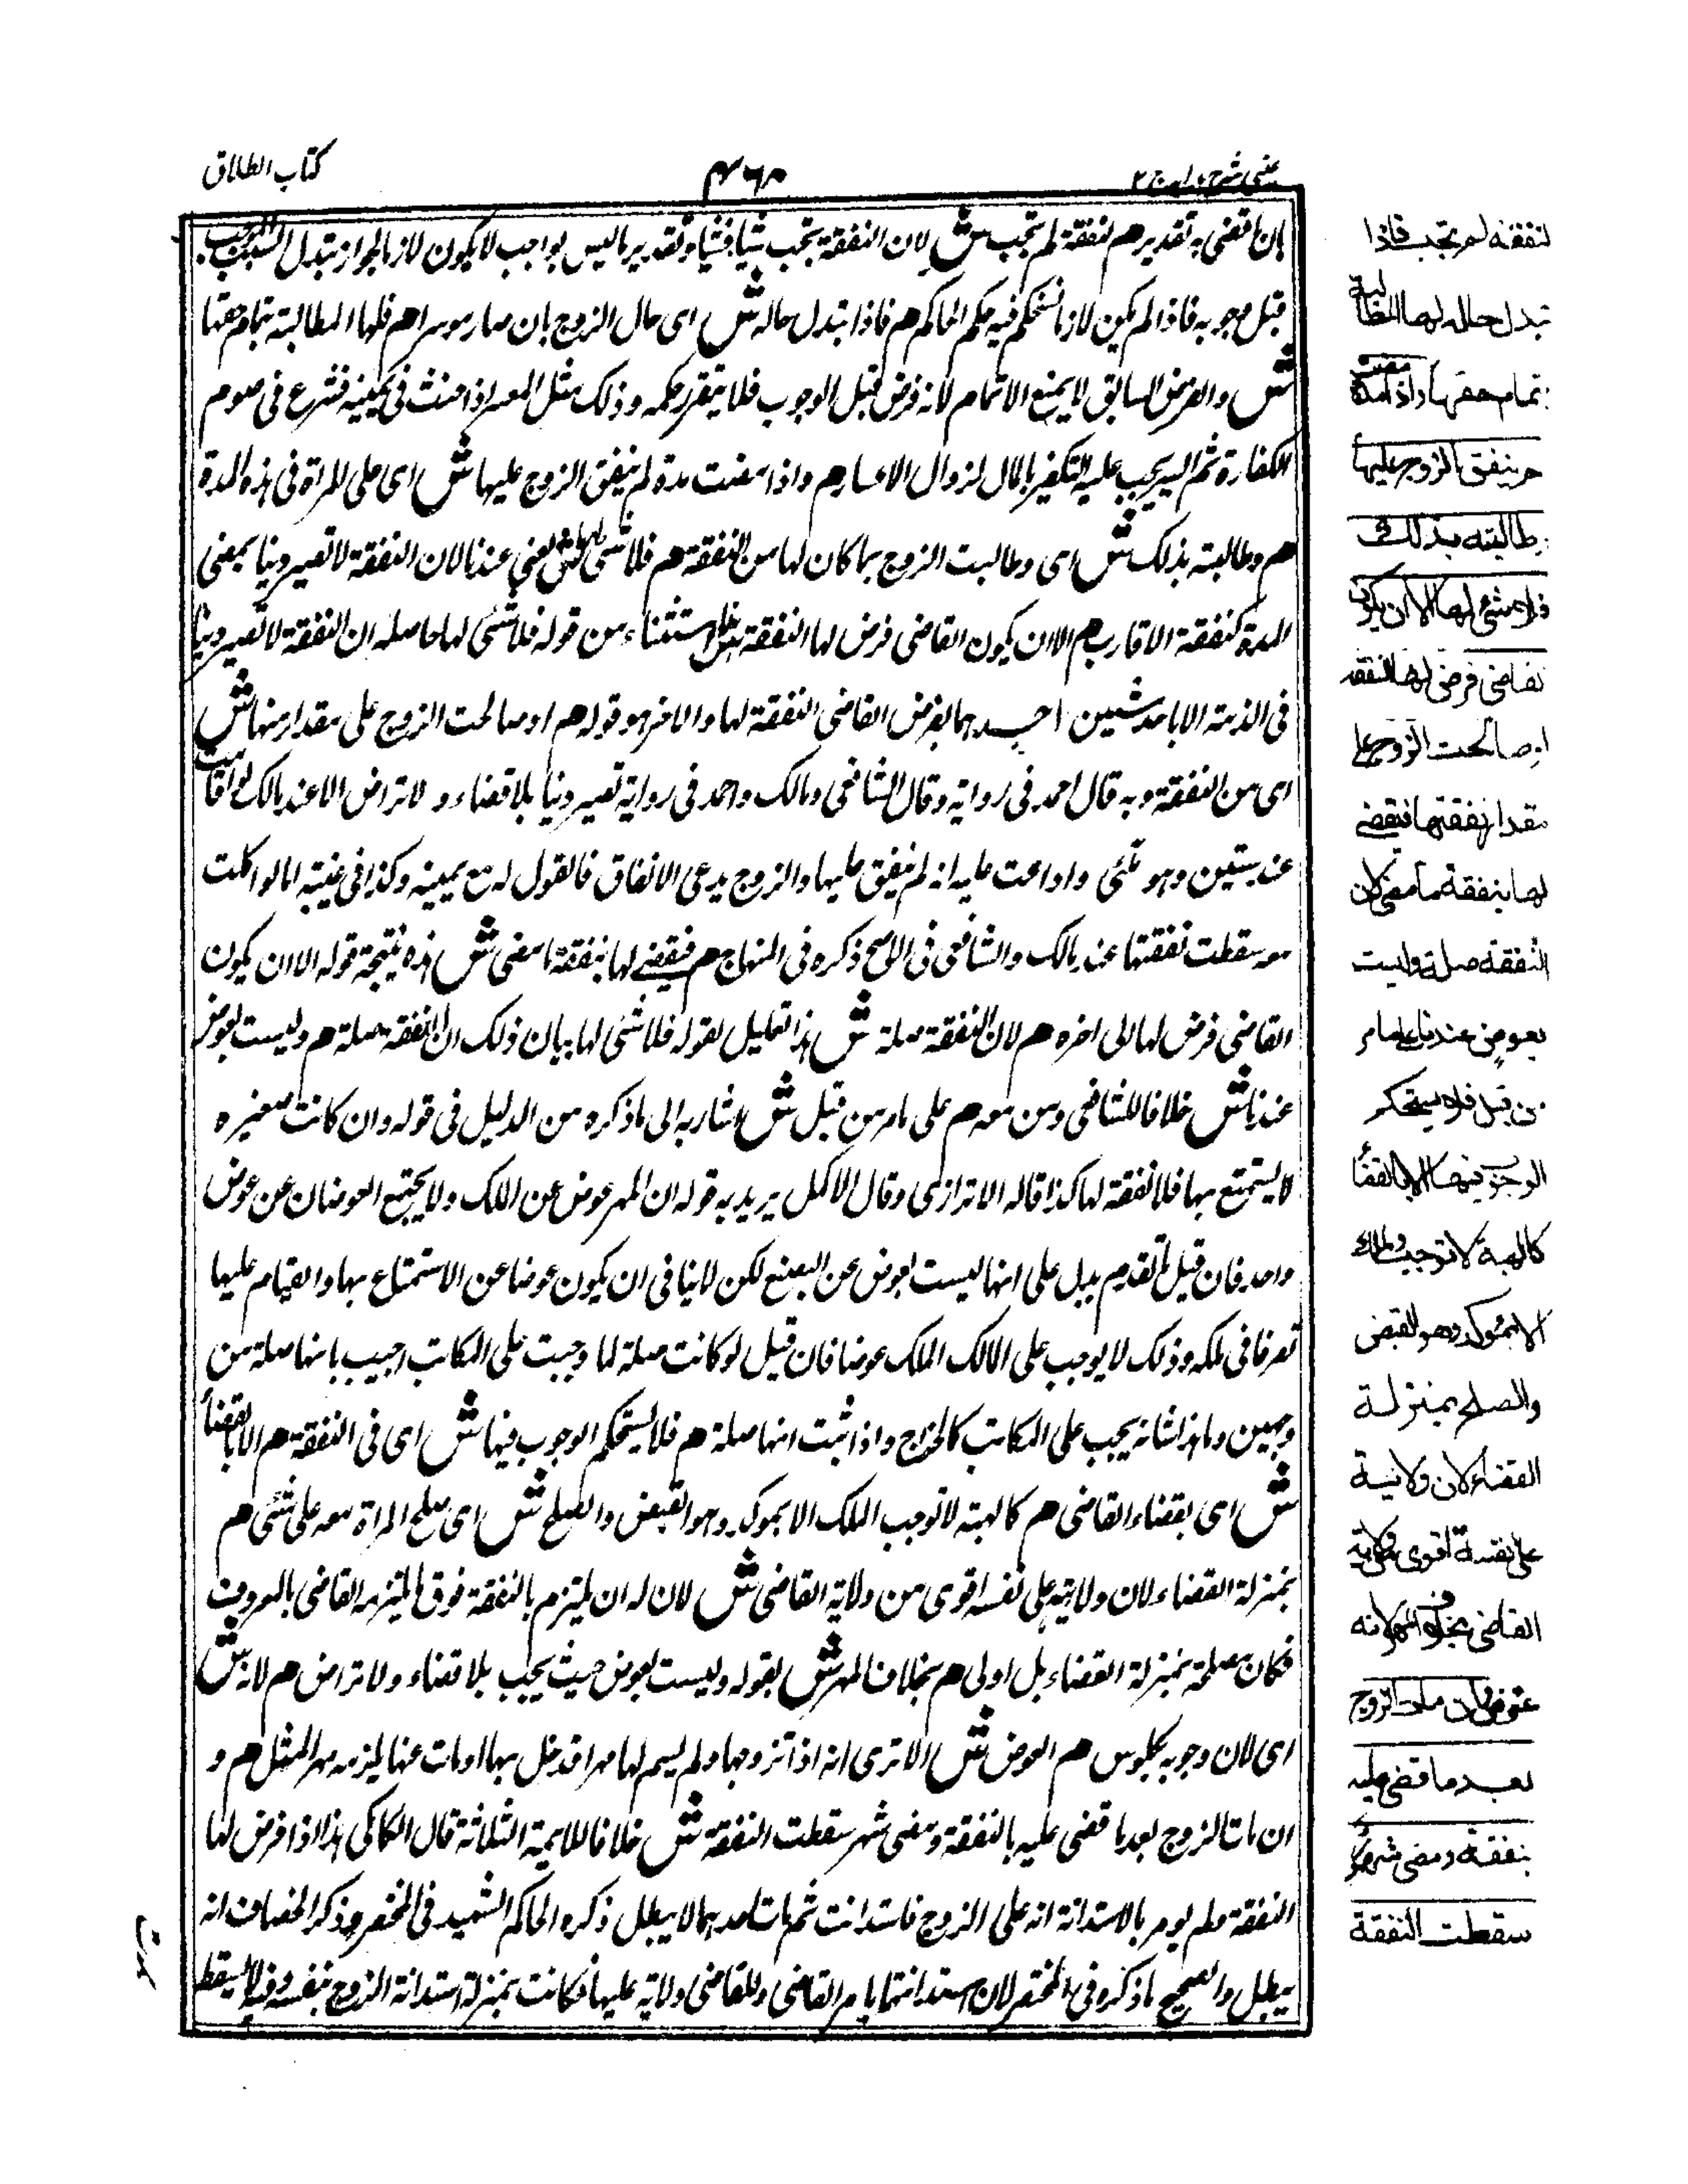 عینی شرح ہدایہ ج ۲
۴۶۰
کتاب الطلاق
بان ما قضى به تقدير هم لنفقة لم تجب ش لان النفقة تجب شيئا فشيئا وتقدير ما ليس بواجب لا يكون لازما لجواز تبدل السبب
قبل وجوبه فاذا لم يكن لازما لم يستحكم فيه حكم الحاكم هم فاذا تبدل حاله ش اى حال الزوج بان صار موسرا هم فلها المطالبة بتمام حقها
ش والفرض السابق لا يمنع الاتمام لانه فرض قبل الوجوب فلا يتقرر حكمه وذلك مثل المعسر اذا حنث فى يمينه فشرع فى صوم
الكفارة ثم ايسر يجب عليه التكفير بالمال لزوال الاعسار هم واذا مضت مدة لم ينفق الزوج عليها ش اى على المرأة فى هذه المدة
هم وطالبته بذلك ش اى وطالبت الزوج بما كان لها من النفقة هم فلا شئ لها ش يعنى عندنا لان النفقة لا تصير دينا بمضى
المدة كنفقة الاقارب هم الا ان يكون القاضى فرض لها النفقة ش استثناء من قوله فلا شئ لها حاصله ان النفقة لا تصير دينا
فى الذمة الا باحد شيئين احدهما بفرض القاضى النفقة لها والاخر هو قوله هم او صالحت الزوج على مقدار منها ش
اى من النفقة وبه قال احمد فى رواية وقال الشافعى ومالك واحمد فى رواية تصير دينا بلا قضاء ولا تراض الا عند مالك لو اقامت
عنده سنتين وهو ملئ وادعت عليه انه لم ينفق عليها والزوج يدعى الانفاق فالقول له مع يمينه وكذا فى غيبته اما لو اكلت
معه سقطت نفقتها عند مالك والشافعى فى الاصح ذكره فى المنهاج هم فيقضى لها بنفقة ما مضى ش هذه نتيجة قوله الا ان يكون
القاضى فرض لها الى اخره هم لان النفقة صلة ش هذا تعليل لقوله فلا شئ لها بيان ذلك ان النفقة صلة هم وليست بعوض
عندنا ش خلافا للشافعى ومن معه هم على ما مر من قبل ش اشار به الى ما ذكره من الدليل فى قوله وان كانت صغيرة
لا يستمتع بها فلا نفقة لها كذا قاله الاترازى وقال الاكمل يريد به قوله ان المهر عوض عن الملك ولا يجتمع العوضان عن عوض
واحد فان قيل ما تقدم يدل على انها ليست بعوض عن البضع لكن لا ينافى ان يكون عوضا عن الاستمتاع بها والقيام عليها
تصرفا فى ملكه وذلك لا يوجب على المالك الملك عوضا فان قيل لو كانت صلة لما وجبت على المكاتب اجيب بانها صلة من
وجهين وما هذا شانه يجب على المكاتب كالخراج واذا ثبت انها صلة هم فلا يستحكم الوجوب فيها ش اى فى النفقة هم الا بالقضاء
ش اى بقضاء القاضى هم كالهبة لا توجب الملك الا بموكد وهو القبض والصلح ش اى صلح المرأة معه على شئ هم
بمنزلة القضاء لان ولايته على نفسه اقوى من ولاية القاضى ش لان له ان يلتزم بالنفقة فوق ما يلتزمه القاضى بالمعروف
فكان صلحه بمنزلة القضاء بل اولى هم بخلاف المهر ش بقوله وليست بعوض حيث يجب بلا قضاء ولا تراض هم لانه ش
اى لان وجوبه هم العوض ش الا ترى انه اذا تزوجها ولم يسم لها مهرا قد دخل بها او مات عنها يلزمه مهر المثل هم و
ان مات الزوج بعد ما قضى عليه بالنفقة ومضى شهر سقطت النفقة ش خلافا للايمة الثلاثة قال الكاكى هذا اذا فرض لها
النفقة ولم يومر بالاستدانة انه على الزوج فاستدانت ثم مات احدهما لا يبطل ذكره الحاكم الشهيد فى المختصر وذكر الخصاف انه
يبطل والصحيح ما ذكره فى المختصر لان استدانتها بامر القاضى وللقاضى ولاية عليها فكانت بمنزلة استدانة الزوج بنفسه وفيه لا يسقط
لنفقة لم تجب فاذا
تبدل حاله لها المطالبة
بتمام حقها واذا مضت مدة
لم ينفق الزوج عليها
وطالبته بذلك
فلا شئ لها الا ان يكون
القاضى فرض لها النفقة
او صالحت الزوج على
مقدار نفقتها فيقضى
لها بنفقة ما مضى لان
النفقة صلة وليست
بعوض عندنا على ما مر
من قبل فلا يستحكم
الوجوب فيها الا بالقضاء
كالهبة لا توجب الملك
الا بموكد وهو القبض
والصلح بمنزلة
القضاء لان ولايته
على نفسه اقوى من ولاية
القاضى بخلاف المهر لانه
عوض وان مات الزوج
بعد ما قضى عليه
بنفقة ومضى شهر
سقطت النفقة